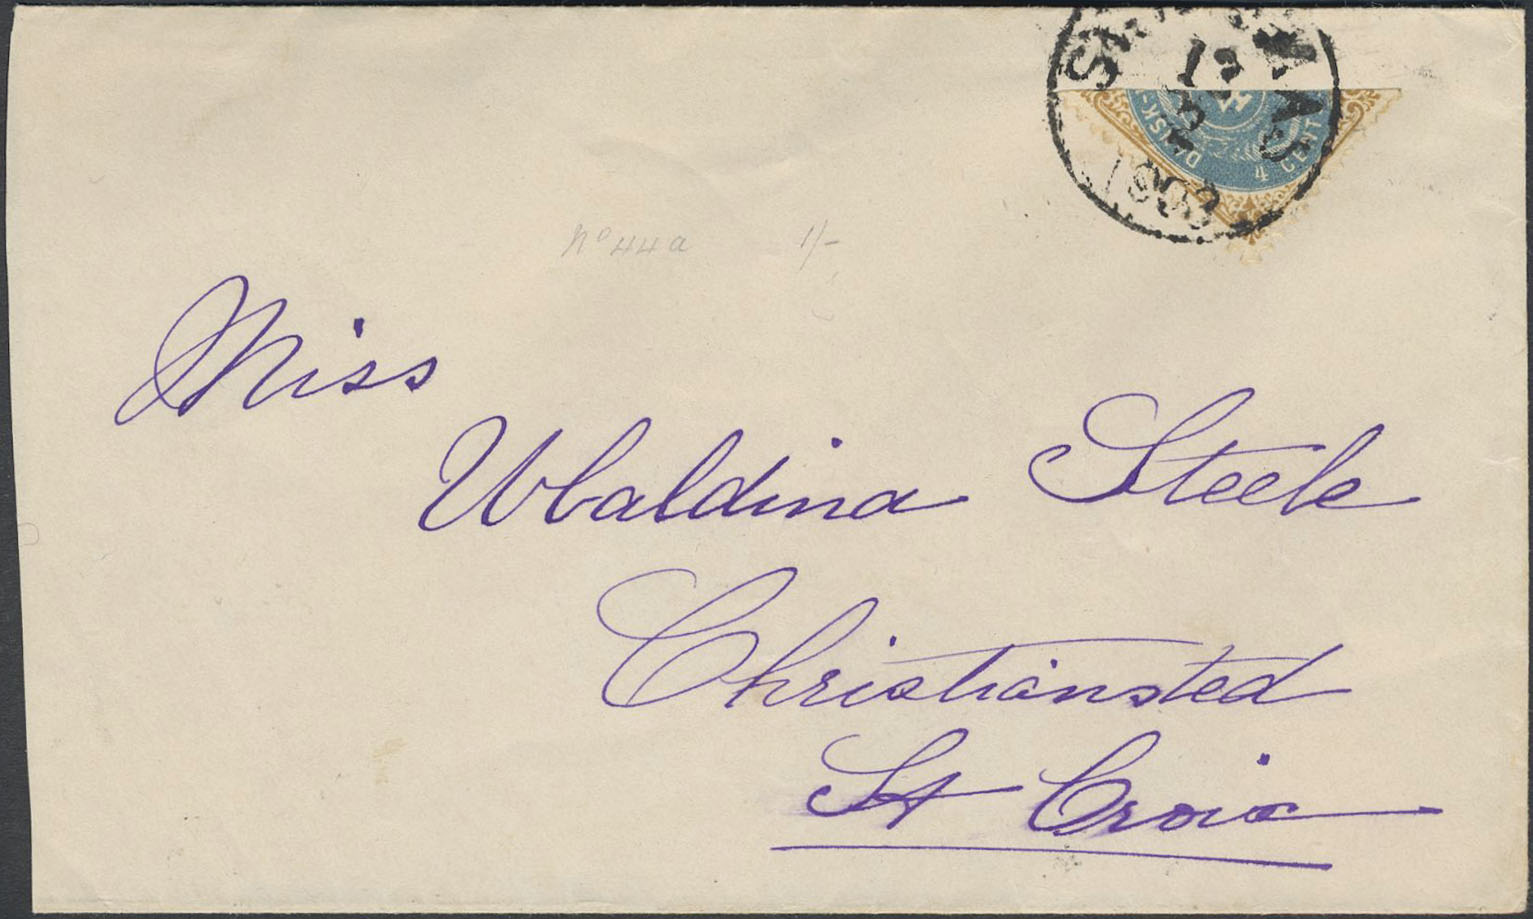 1903
DANSK
4 CENT
No 44a 1/-
Miss
Ubaldina Steele
Christiansted
St Croix